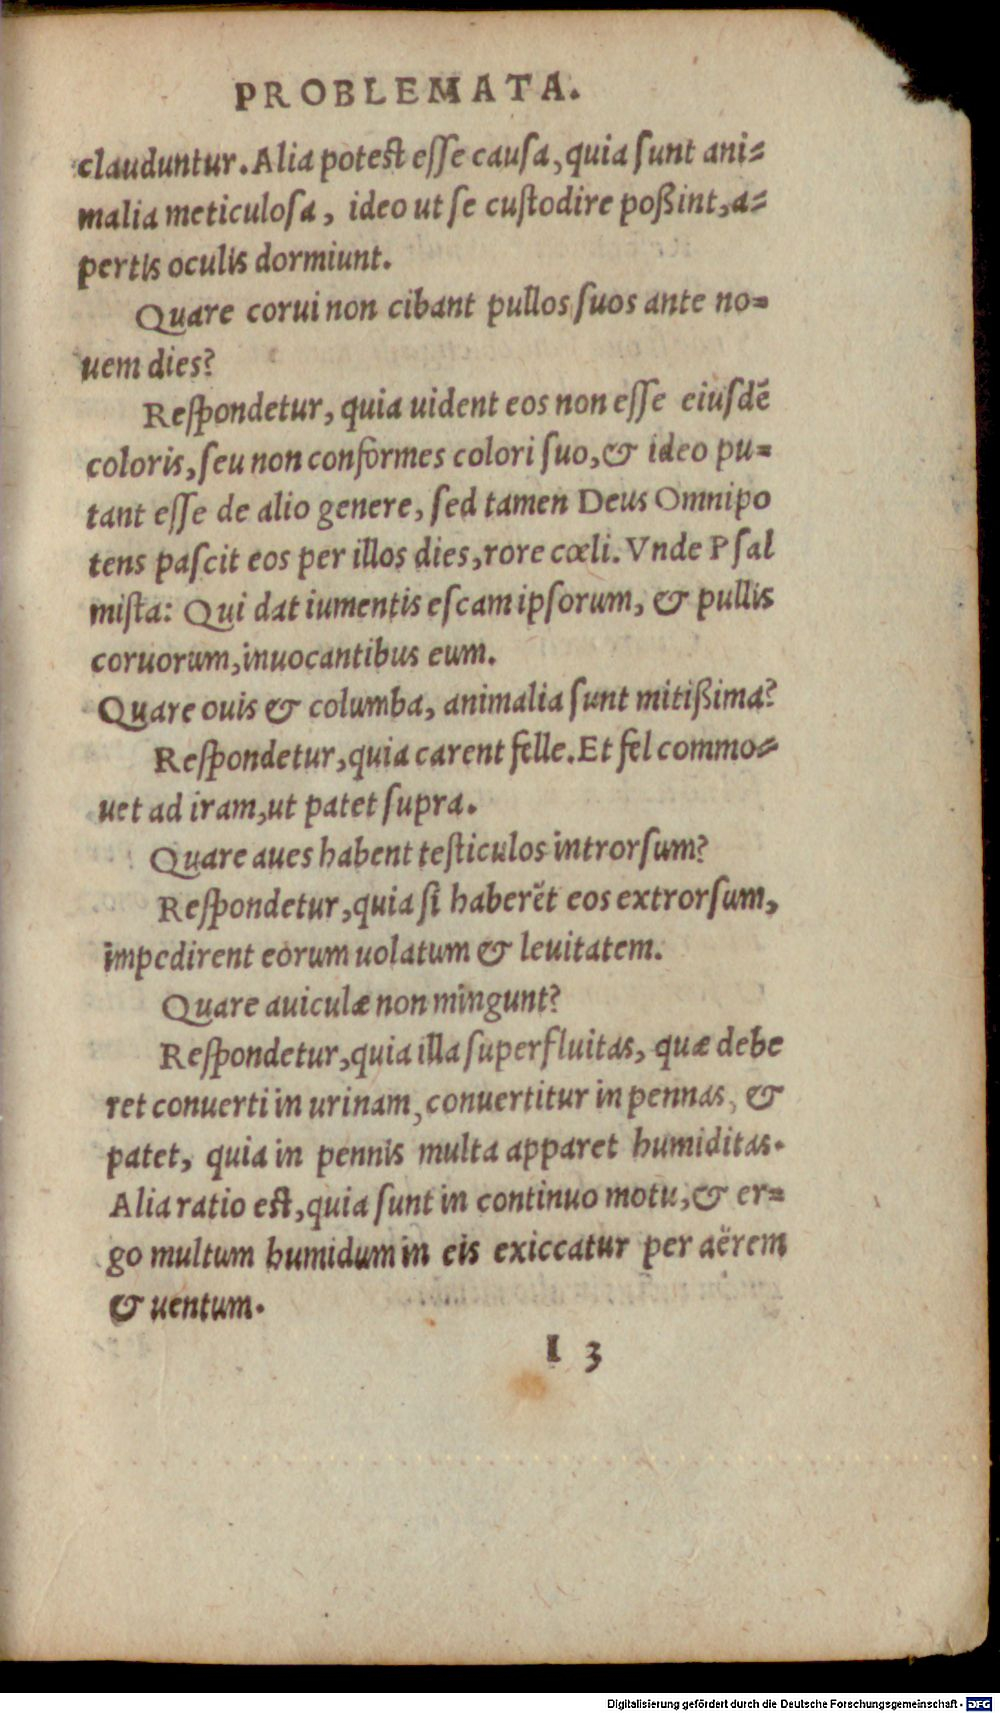 PROBLEMATA.
clauduntur. Alia potest esse causa, quia sunt ani-
malia meticulosa, ideo ut se custodire poßint, a-
pertis oculis dormiunt.
Quare corui non cibant pullos suos ante no-
uem dies?
Respondetur, quia uident eos non esse eiusdē
coloris, seu non conformes colori suo, & ideo pu-
tant esse de alio genere, sed tamen Deus Omnipo
tens pascit eos per illos dies, rore cœli. Vnde Psal
mista: Qui dat iumentis escam ipsorum, & pullis
coruorum, inuocantibus eum.
Quare ouis & columba, animalia sunt mitißima?
Respondetur, quia carent felle. Et fel commo-
uet ad iram, ut patet supra.
Quare aues habent testiculos introrsum?
Respondetur, quia si haberēt eos extrorsum,
impedirent eorum uolatum & leuitatem.
Quare auiculæ non mingunt?
Respondetur, quia illa superfluitas, quæ debe
ret conuerti in urinam, conuertitur in pennas, &
patet, quia in pennis multa apparet humiditas.
Alia ratio est, quia sunt in continuo motu, & er-
go multum humidum in eis exiccatur per aërem
& uentum.
I 3
Digitalisierung gefördert durch die Deutsche Forschungsgemeinschaft - DFG